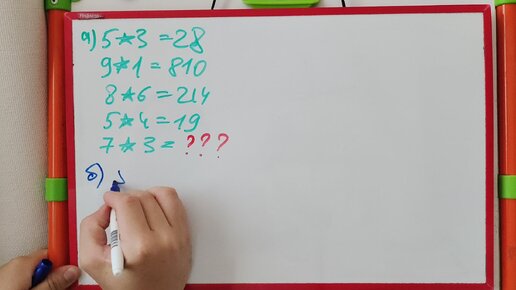 а) 5*3=28
9*1=810
8*6=214
5*4=19
7*3=???
б)